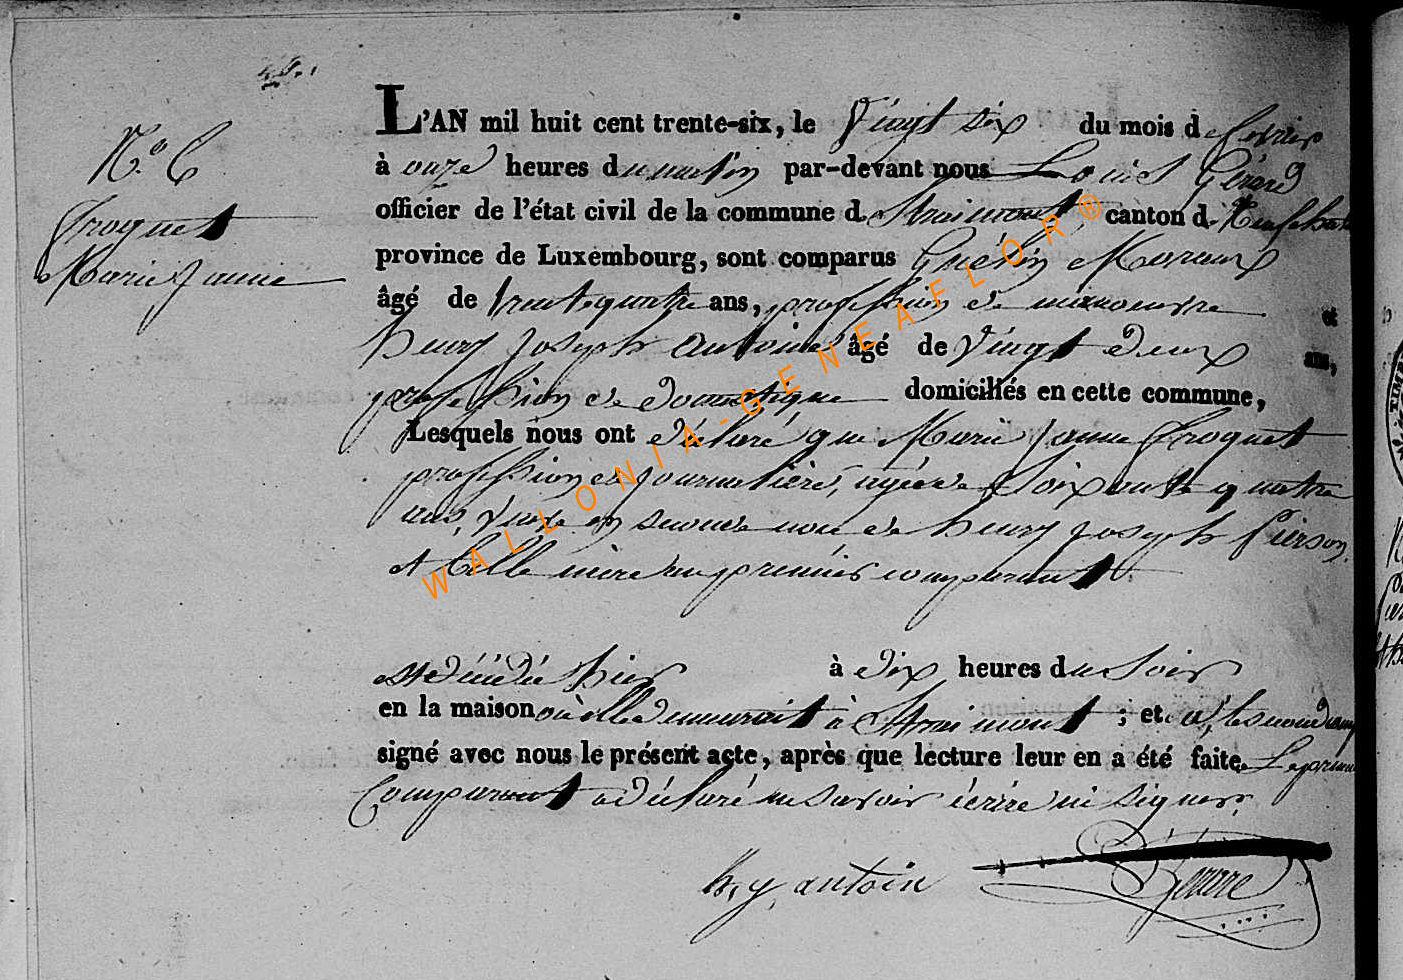 N.º 6
froquet
Marie Janne
L'AN mil huit cent trente-six, le Vingt six du mois de fevrier
à onze heures du matin par-devant nous Louis Gérard
officier de l'état civil de la commune d Straimont, canton d Neufchateau
province de Luxembourg, sont comparus Guérin Maraux
âgé de trente quatre ans, profession de manoeuvre et
henry Joseph Antoine âgé de Vingt deux ans,
profession de domestique domiciliés en cette commune,
Lesquels nous ont déclaré que Marie Janne froquet
profession de Journalière, agée de Soixante quatre
ans, en seconde noce de henry Joseph Pierson
et belle mère au premier comparant
est décédé hier à dix heures du Soir
en la maison où elle demeurait à Straimont ; et a, le second comp
signé avec nous le présent acte, après que lecture leur en a été faite Le premier
Comparant a déclaré ne savoir écrire ni signer,
h, y, antoin
WALLONIA-GENEAFLOR®